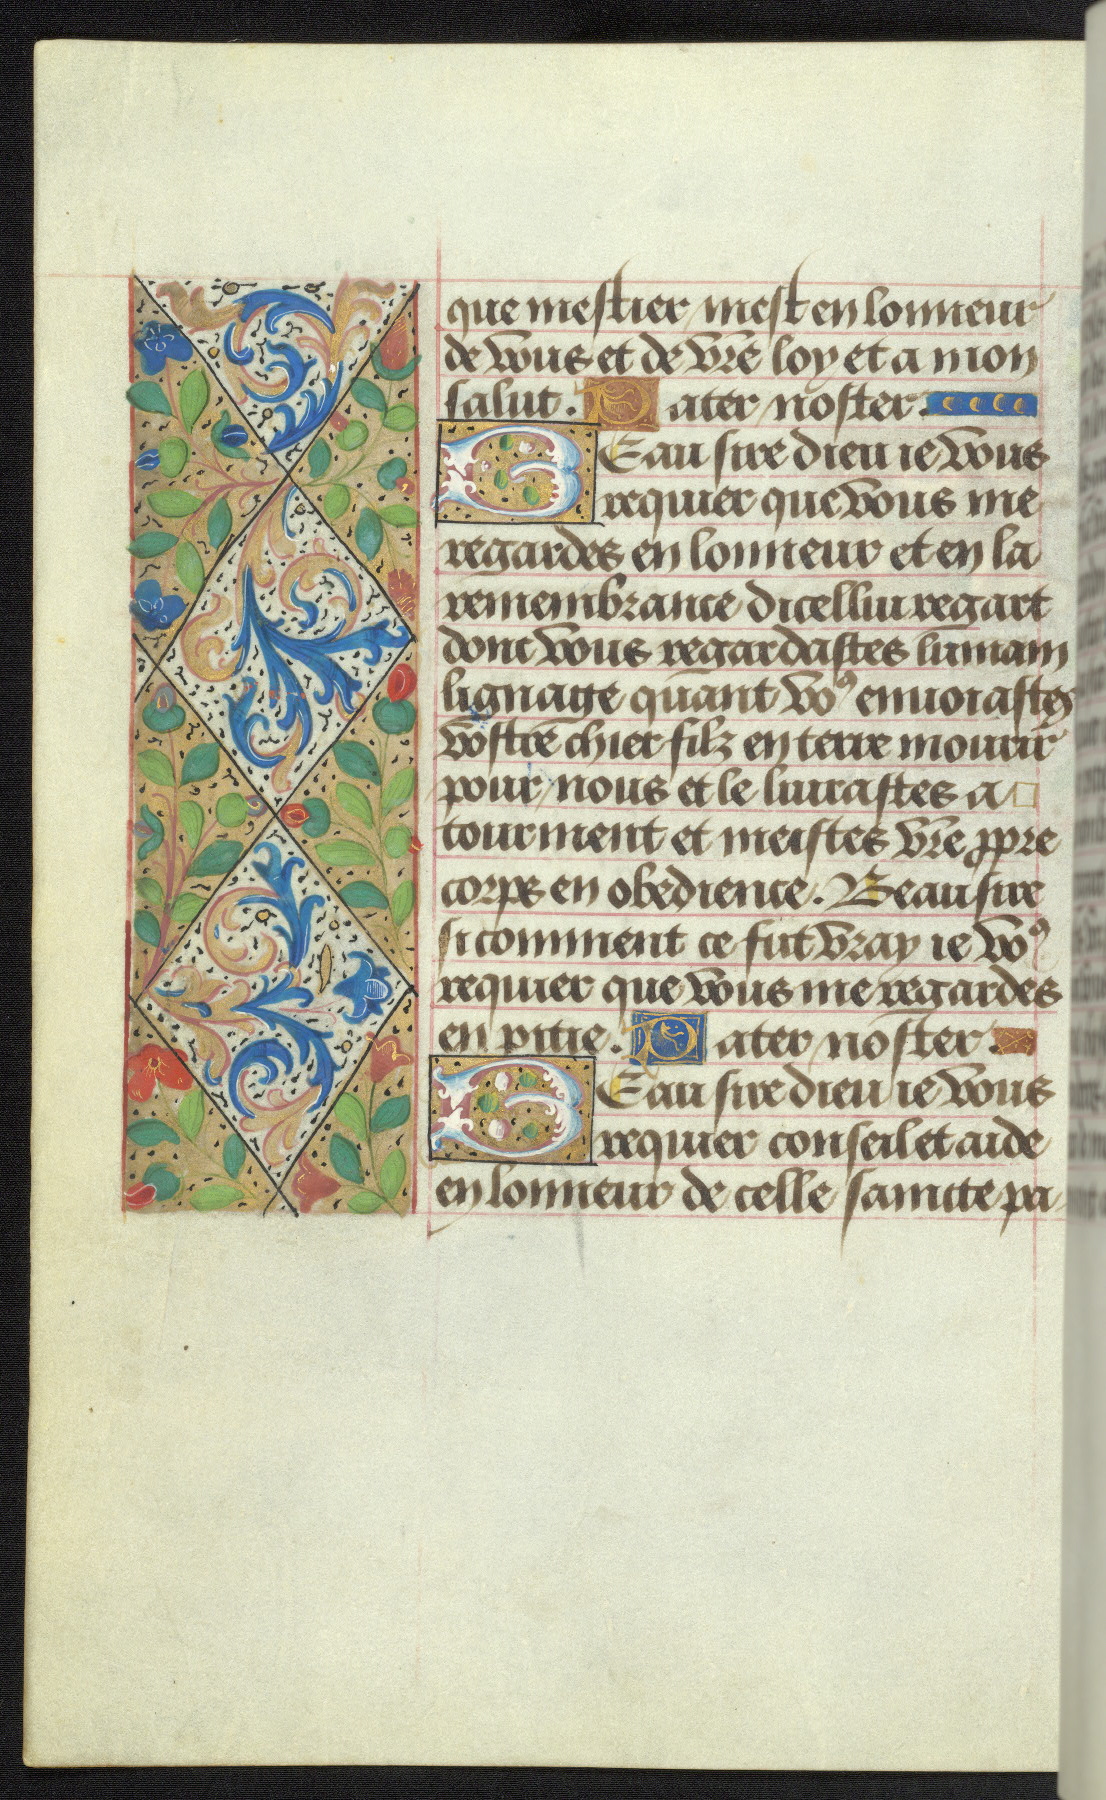 que mestier mest en lonneur
de vous et de vr̄e loy et a mon
salut. Pater noster.
BEau sire dieu ie vous
requier que vous me
regardes en lonneur et en la
remembrance dicelluy regart
dont vous regardastes lumain
lignage quant vo⁹ enuoiastes
vostre chier filz en terre mourir
pour nous et le liurastes a
tourment et meistes vr̄e ꝓpre
corps en obedience. Beau sire
si comment ce fut vray ie vo⁹
requier que vous me regardes
en pitie. Pater noster.
BEau sire dieu ie vous
requier conseil et aide
en lonneur de celle saincte pa